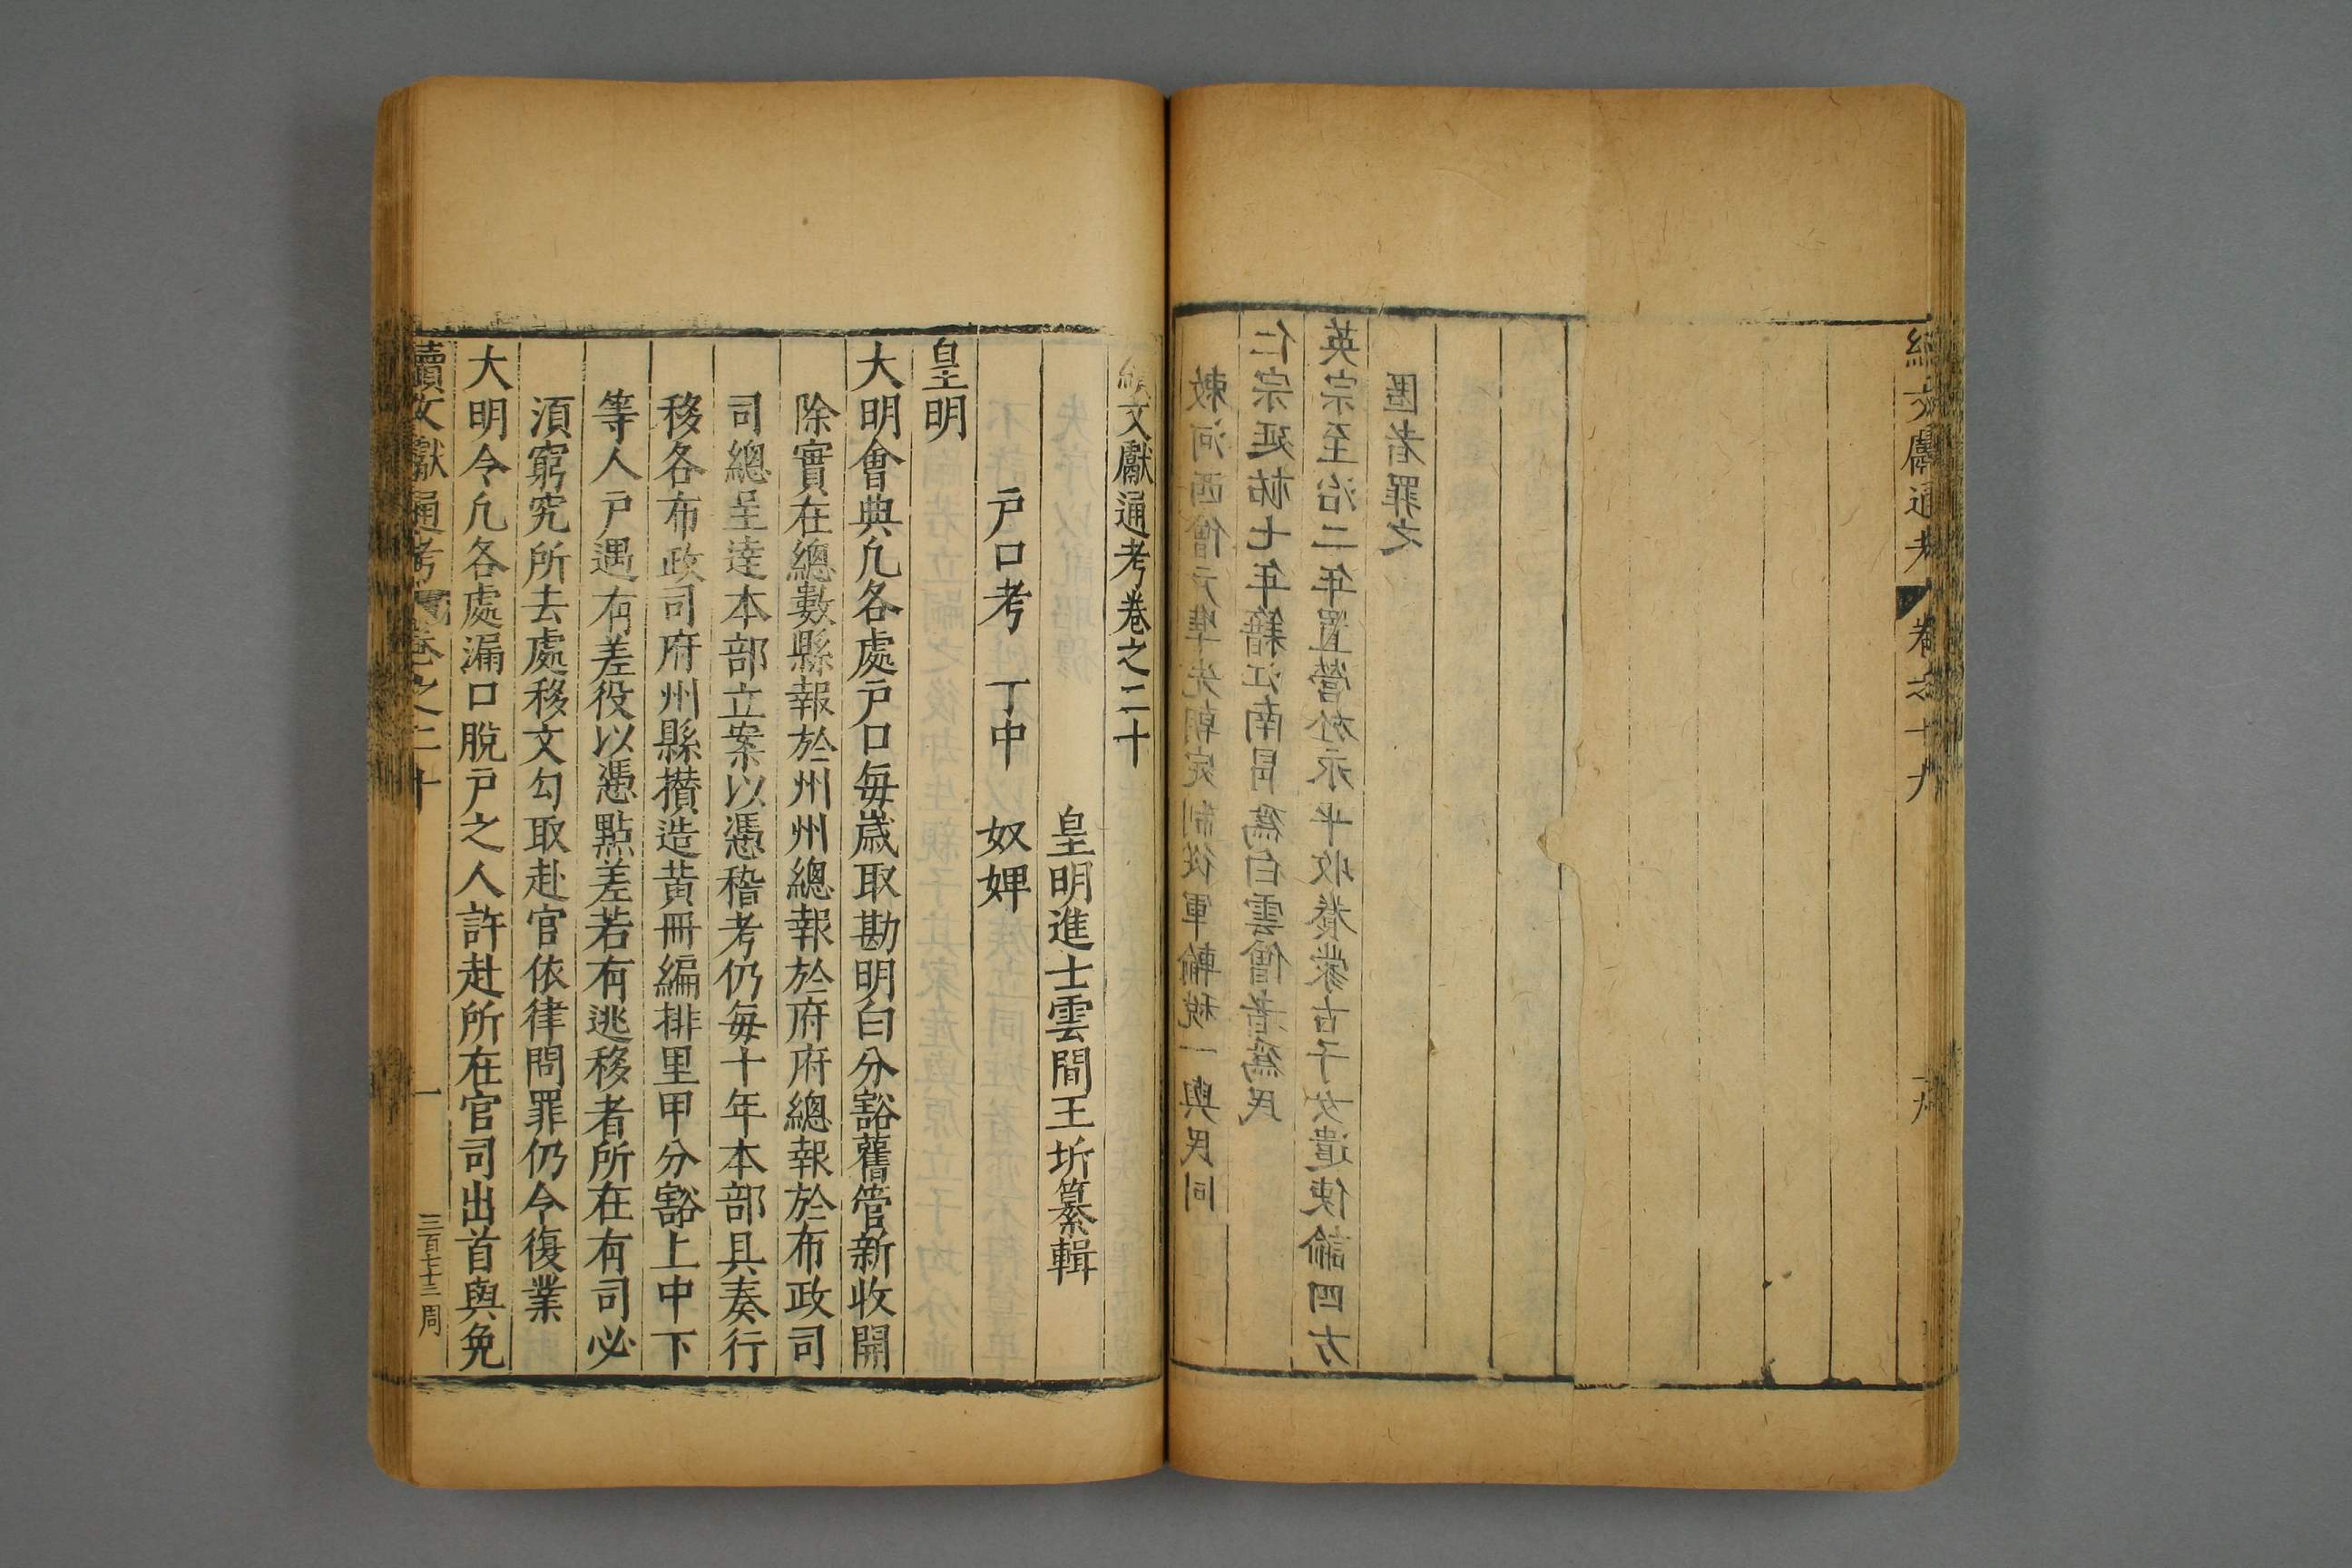 續文獻通考 卷之十九
十九
匿者罪之
英宗至治二年置營於永平收養蒙古子女遣使諭四方
仁宗延祐七年籍江南冒為白雲僧者為民
敕河西僧元準先朝定制從軍輸稅一與民同
續文獻通考卷之二十
皇明進士雲間王圻纂輯
戶口考 丁中 奴婢
皇明
大明會典凡各處戶口每歲取勘明白分豁舊管新收開
除實在總數縣報於州州總報於府府總報於布政司
司總呈達本部立案以憑稽考仍每十年本部具奏行
移各布政司府州縣攢造黃冊編排里甲分豁上中下
等人戶遇有差役以憑點差若有逃移者所在有司必
須窮究所去處移文勾取赴官依律問罪仍令復業
大明令凡各處漏口脫戶之人許赴所在官司出首與免
續文獻通考 卷之二十
一
三百七十三 周